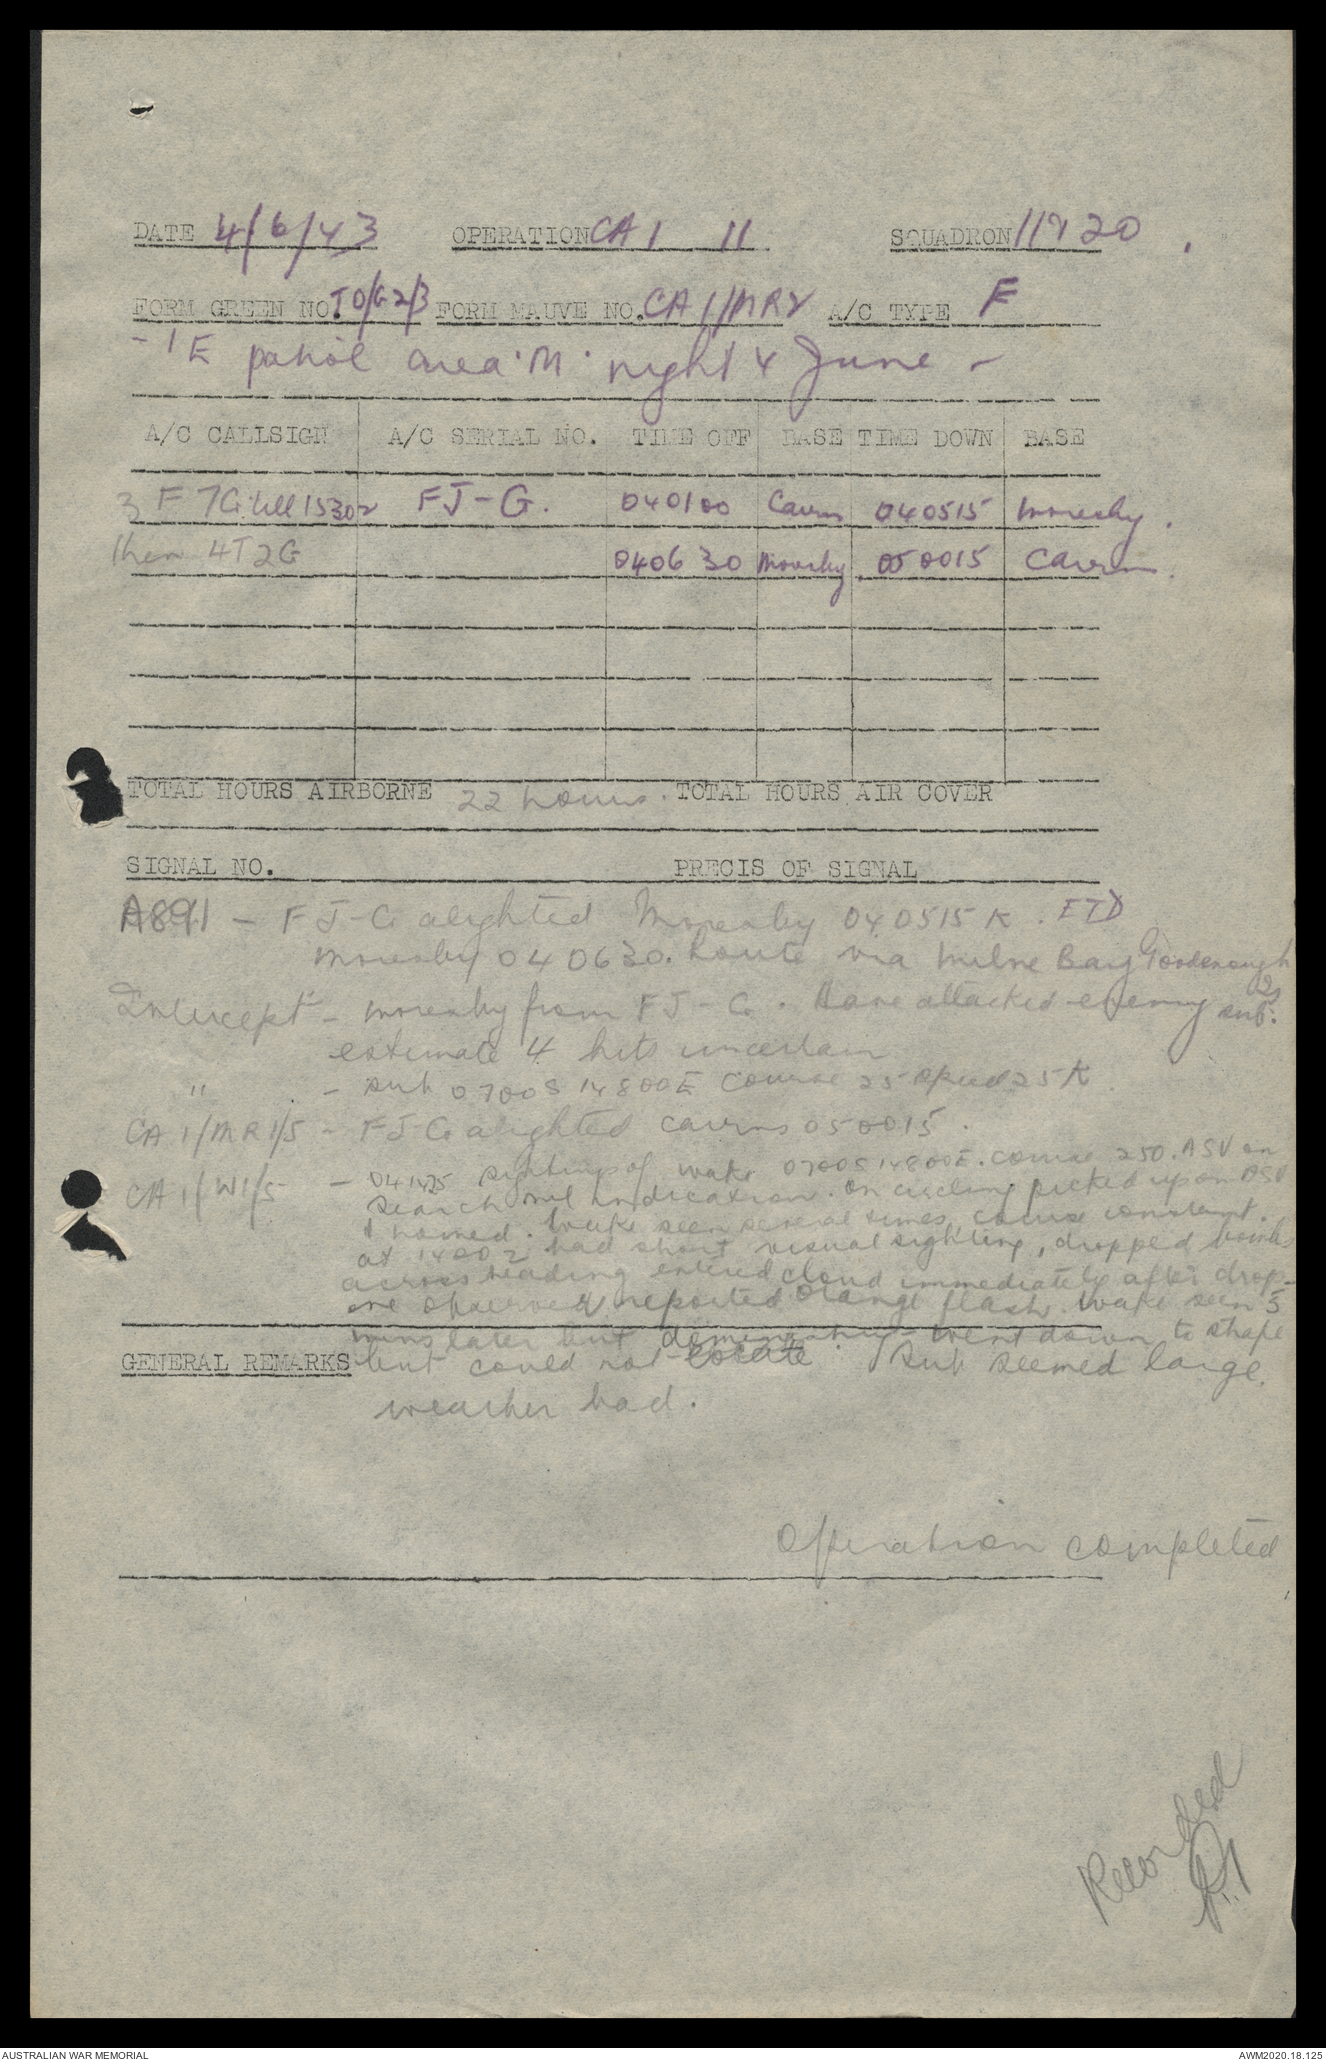 DATE 4/6/43 OPERATION CA 1 11 SQUADRON 11 & 20
FORM GREEN NO. TO/G2/3 FORM MAUVE NO. CA 1/MR2 A/C TYPE F
- 1 E patrol area 'M' night 4 June -
A/C CALLSIGN A/C SERIAL NO. TIME OFF BASE TIME DOWN BASE
3 F 7G till 1530Z FJ-G. 040100 Cairns 040515 Moresby.
then 4T2G 040630 Moresby 050015 Cairns.
TOTAL HOURS AIRBORNE 22 hours. TOTAL HOURS AIR COVER
SIGNAL NO. PRECIS OF SIGNAL
A891 - FJ-G alighted Moresby 040515 K. ETD
Moresby 040630. Route via Milne Bay Goodenough
Intercept - Moresby from FJ-G. Have attacked enemy sub.
estimate 4 hits uncertain
" - sub 0700S 14800E Course 25 speed 25 K.
CA 1/MR1/5 - FJ-G alighted Cairns 050015.
CA 1/W1/5 - sighting of wake 0700S 14800E. course 250. ASV on
search nil indication. On circling picked up on ASV
& homed. Wake seen several times, course constant.
at 1400Z had short visual sighting, dropped bombs
across heading entered cloud immediately after drop-
one observer reported orange flash. Wake seen 5
mins later but diminishing - went down to shape
GENERAL REMARKS but could not locate. Sub seemed large.
weather bad.
Operation completed
Recorded
AUSTRALIAN WAR MEMORIAL AWM2020.18.125